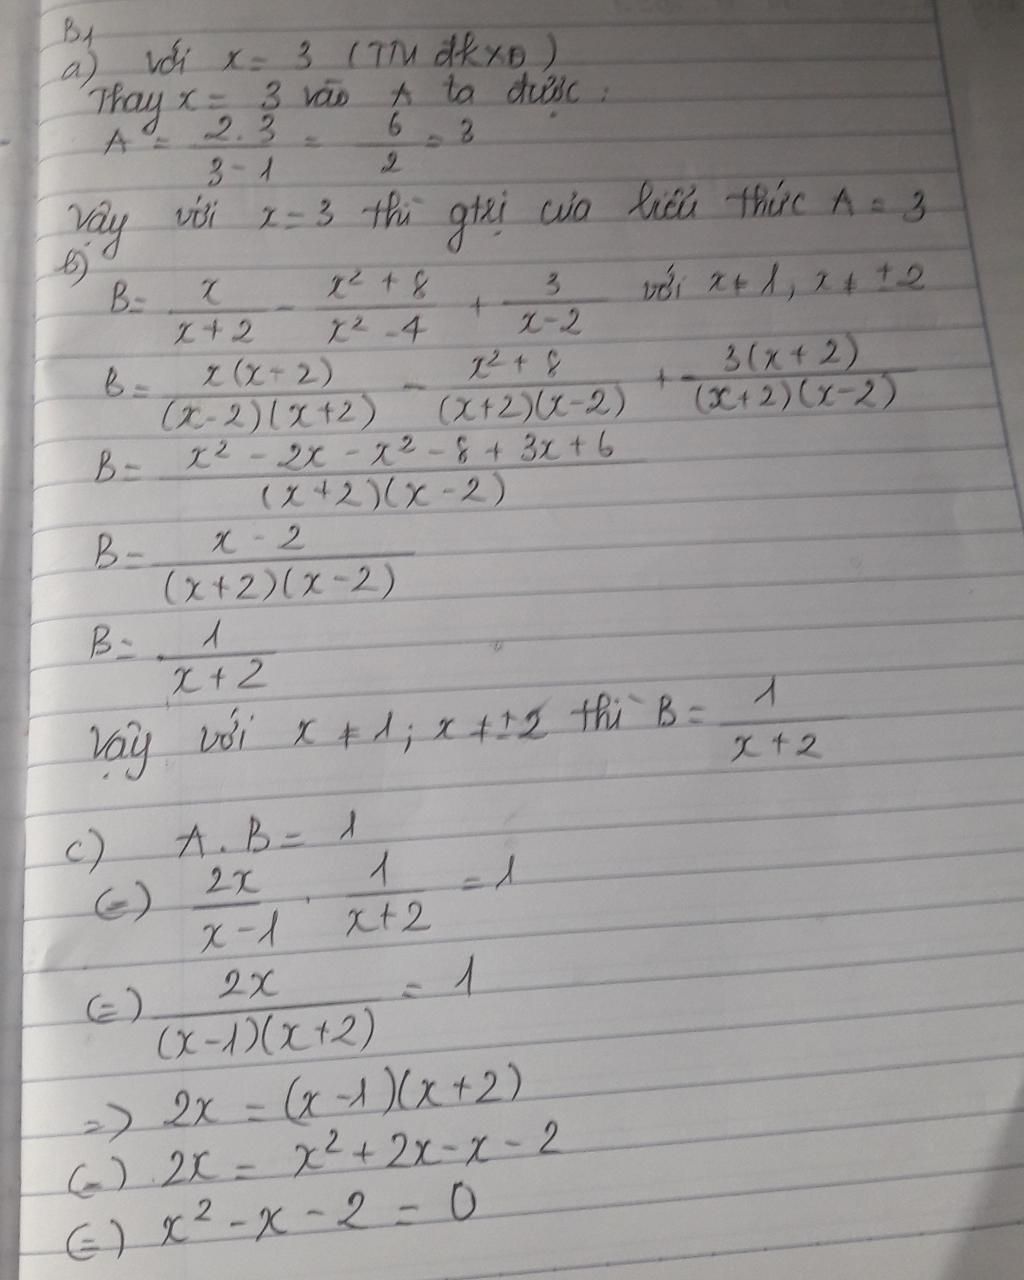 B1
a) với x = 3 (TM đkxĐ)
Thay x = 3 vào A ta được:
A = \frac{2.3}{3-1} = \frac{6}{2} = 3
Vậy với x = 3 thì gtrị của biểu thức A = 3
b)
B = \frac{x}{x+2} - \frac{x^2+8}{x^2-4} + \frac{3}{x-2} với x ≠ 1, x ≠ ±2
B = \frac{x(x-2)}{(x-2)(x+2)} - \frac{x^2+8}{(x+2)(x-2)} + \frac{3(x+2)}{(x+2)(x-2)}
B = \frac{x^2-2x-x^2-8+3x+6}{(x+2)(x-2)}
B = \frac{x-2}{(x+2)(x-2)}
B = \frac{1}{x+2}
Vậy với x ≠ 1; x ≠ ±2 thì B = \frac{1}{x+2}
c) A.B = 1
(=) \frac{2x}{x-1} . \frac{1}{x+2} = 1
(=) \frac{2x}{(x-1)(x+2)} = 1
=> 2x = (x-1)(x+2)
(=) 2x = x^2+2x-x-2
(=) x^2-x-2 = 0